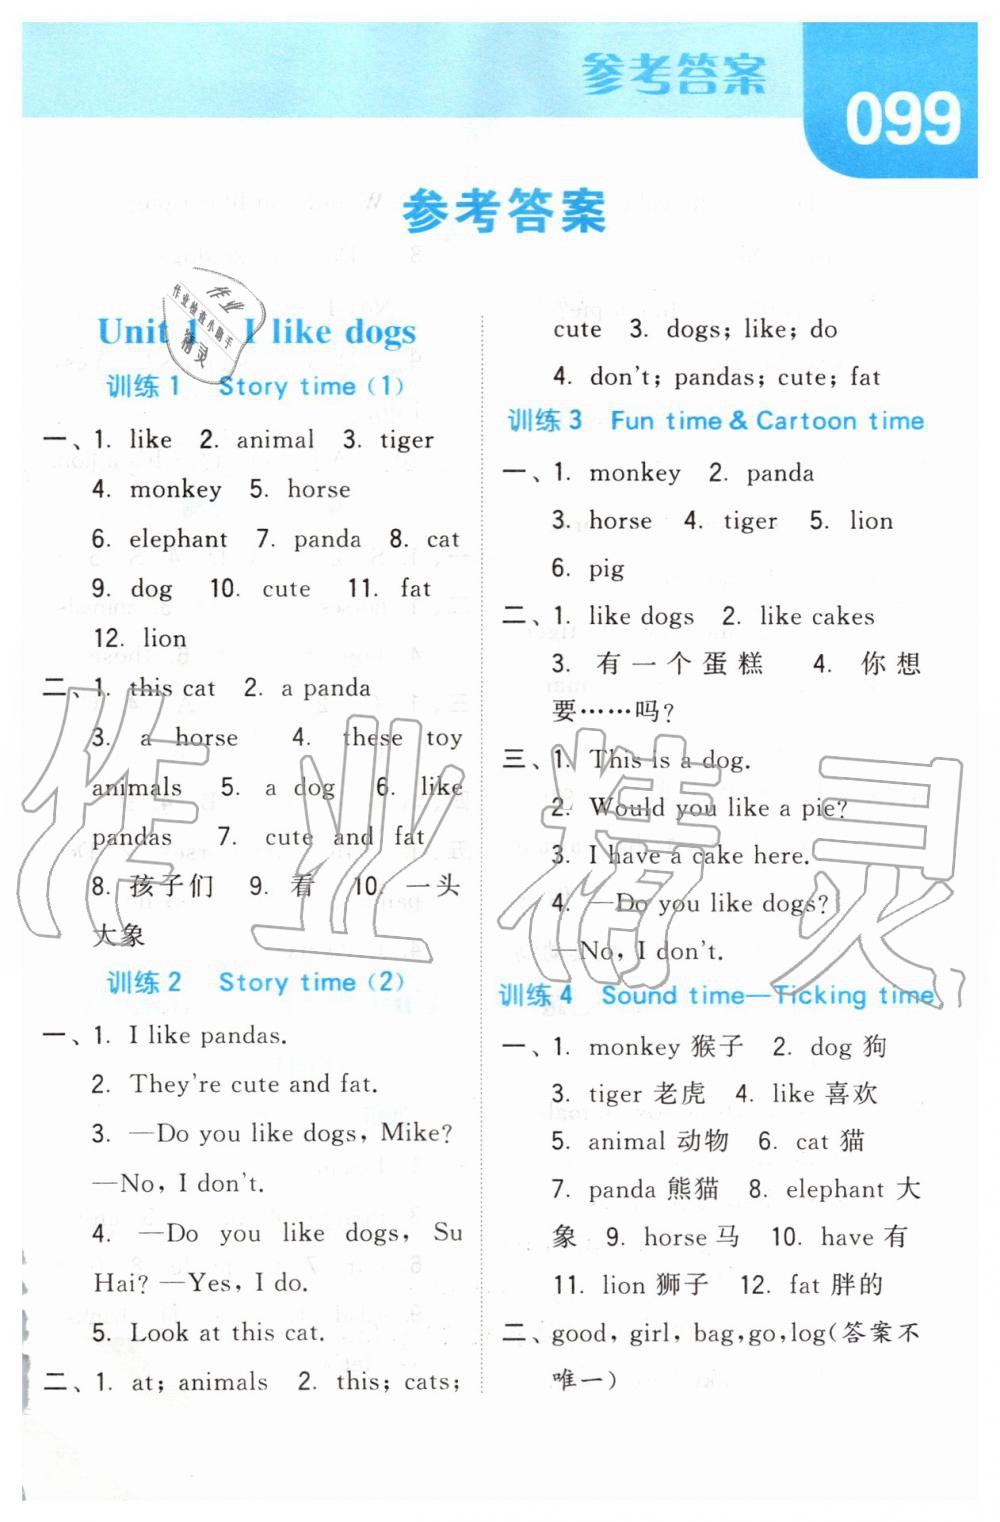 参考答案
099
参考答案
Unit 1 I like dogs
训练1 Story time (1)
一、1. like 2. animal 3. tiger
4. monkey 5. horse
6. elephant 7. panda 8. cat
9. dog 10. cute 11. fat
12. lion
二、1. this cat 2. a panda
3. a horse 4. these toy
animals 5. a dog 6. like
pandas 7. cute and fat
8. 孩子们 9. 看 10. 一头
大象
训练2 Story time (2)
一、1. I like pandas.
2. They're cute and fat.
3. —Do you like dogs, Mike?
—No, I don't.
4. —Do you like dogs, Su
Hai? —Yes, I do.
5. Look at this cat.
二、1. at; animals 2. this; cats;
cute 3. dogs; like; do
4. don't; pandas; cute; fat
训练3 Fun time & Cartoon time
一、1. monkey 2. panda
3. horse 4. tiger 5. lion
6. pig
二、1. like dogs 2. like cakes
3. 有一个蛋糕 4. 你想
要……吗?
三、1. This is a dog.
2. Would you like a pie?
3. I have a cake here.
4. —Do you like dogs?
—No, I don't.
训练4 Sound time—Ticking time
一、1. monkey 猴子 2. dog 狗
3. tiger 老虎 4. like 喜欢
5. animal 动物 6. cat 猫
7. panda 熊猫 8. elephant 大
象 9. horse 马 10. have 有
11. lion 狮子 12. fat 胖的
二、good, girl, bag,go,log(答案不
唯一)
作业
作业检查小助手
精灵
作业精灵